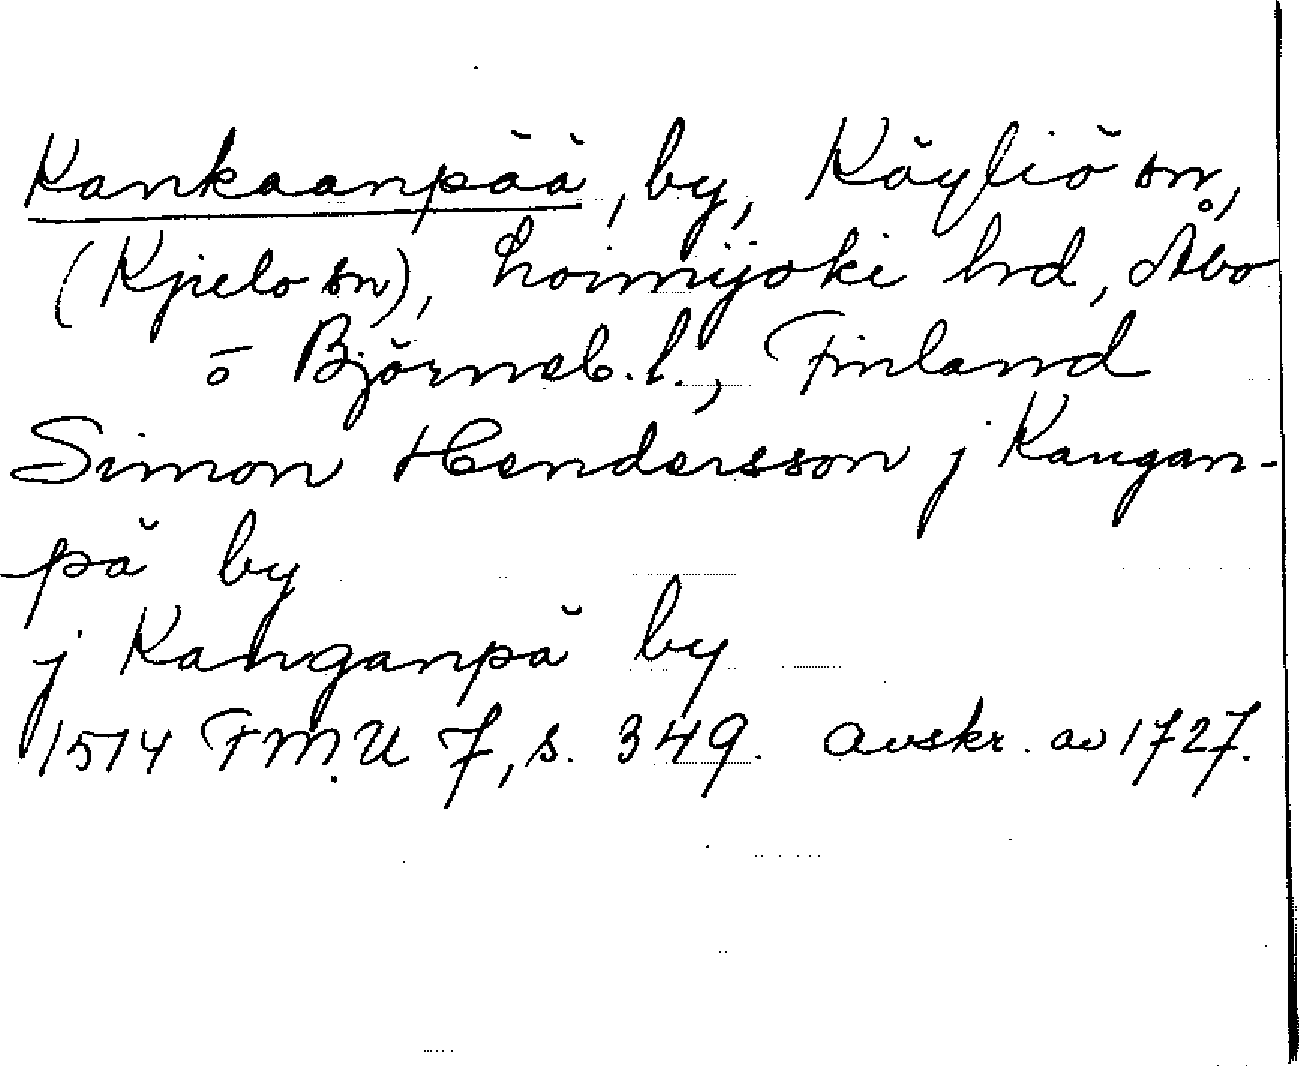 Kankaanpää, by, Käyliö sn,
(Kjielo sn), Loimijoki hrd, Åbo
o Björneb. l., Finland
Simon Hendersson j Kangan-
pä by
j Kanganpä by
1514 FMU 7, s. 349. avskr. av 1727.